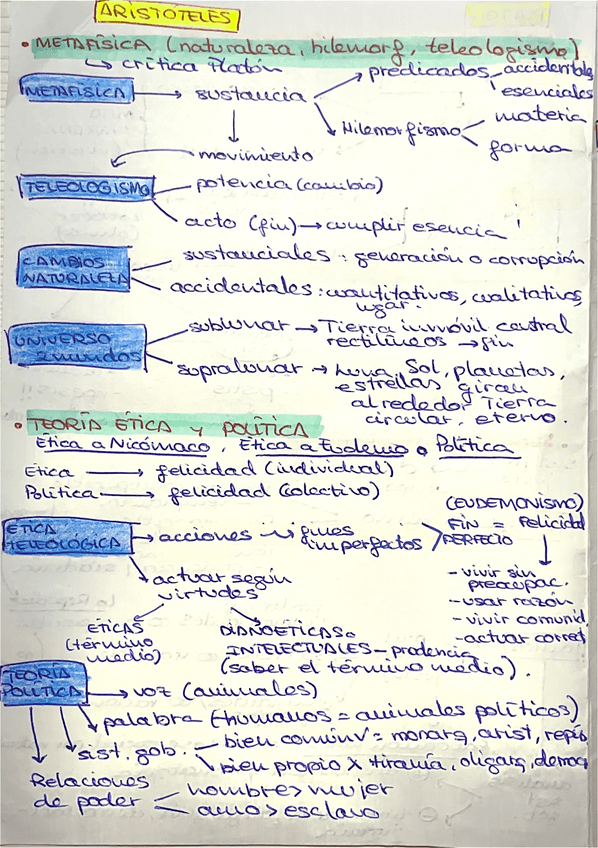 ARISTÓTELES
• METAFÍSICA (naturaleza, hilemorf, teleologismo)
↳ crítica Platón
METAFÍSICA → sustancia → predicados accidentales
esenciales
Hilemorfismo materia
forma
movimiento
TELEOLOGISMO potencia (cambio)
acto (fin) → cumplir esencia
CAMBIOS NATURALEZA sustanciales : generación o corrupción
accidentales : cuantitativos, cualitativos,
lugar.
UNIVERSO 2 mundos sublunar → Tierra inmóvil central
rectilíneos → fin
supralunar → Luna, Sol, planetas,
estrellas giran
alrededor Tierra
circular, eterno.
• TEORÍA ÉTICA y POLÍTICA
Ética a Nicómaco, Ética a Eudemo o Política
Ética → felicidad (individual)
Política → felicidad (colectivo)
(EUDEMONISMO)
ÉTICA TELEOLÓGICA → acciones → fines
imperfectos
FIN = Felicidad
PERFECTO
- vivir sin
preocupac.
- usar razón
- vivir comunid.
- actuar correct
actuar según
virtudes
ÉTICAS
(término
medio)
DIANOÉTICAS o
INTELECTUALES - prudencia
(saber el término medio).
TEORÍA POLÍTICA → voz (animales)
palabra (humanos = animales políticos)
sist. gob. bien común v = monarq, arist, repúb
bien propio x tiranía, oligarq, democ
Relaciones
de poder hombre > mujer
amo > esclavo